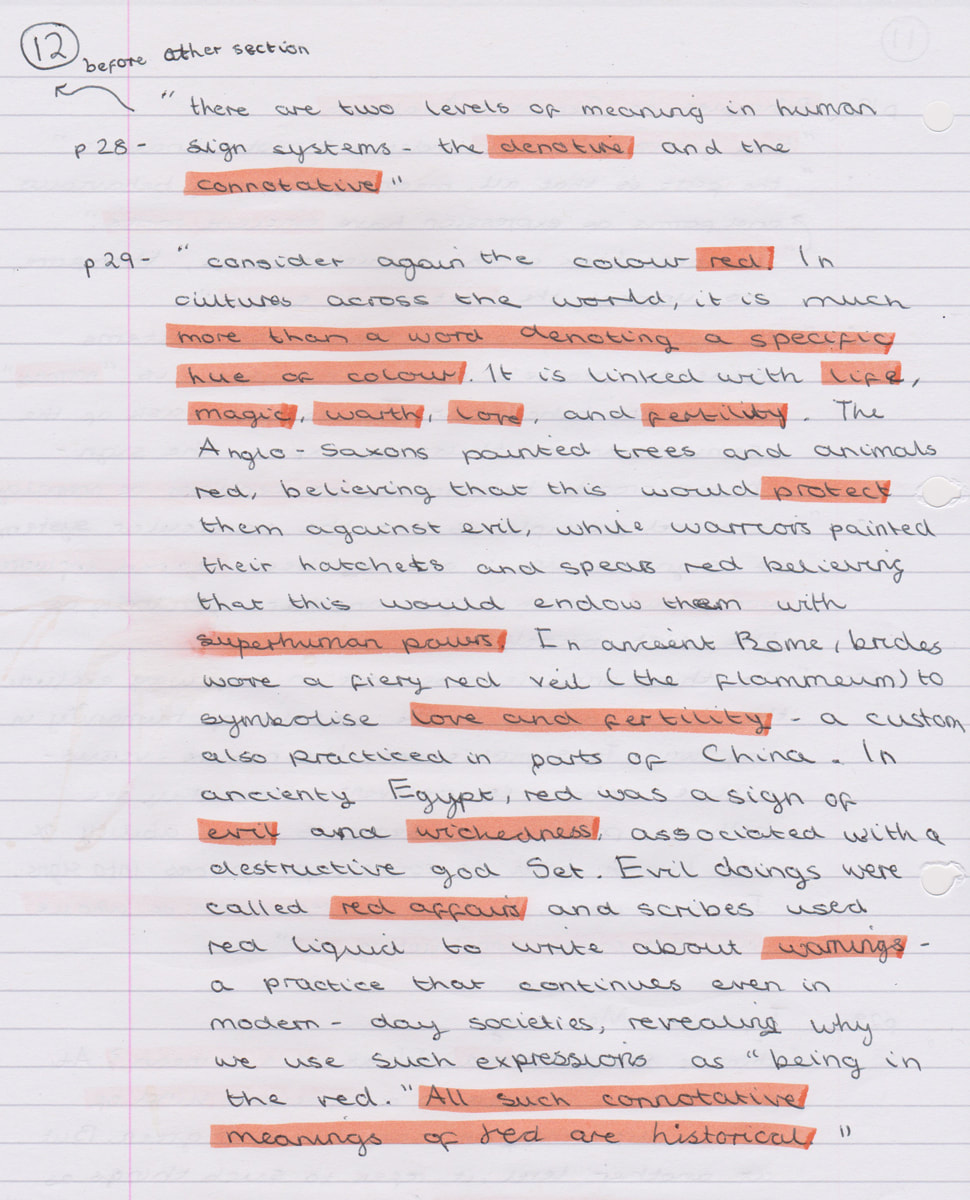 12
before other section
"there are two levels of meaning in human
p28- sign systems - the denotive and the
connotative"
p29- "consider again the colour red. In
cultures across the world, it is much
more than a word denoting a specific
hue of colour. It is linked with life,
magic, warth, love, and fertility. The
Anglo-Saxons painted trees and animals
red, believing that this would protect
them against evil, while warriors painted
their hatchets and spears red believing
that this would endow them with
superhuman powers. In ancient Rome, brides
wore a fiery red veil (the flammeum) to
symbolise love and fertility - a custom
also practiced in parts of China. In
ancienty Egypt, red was a sign of
evil and wickedness, associated with a
destructive god Set. Evil doings were
called red affairs and scribes used
red liquid to write about warnings -
a practice that continues even in
modern-day societies, revealing why
we use such expressions as "being in
the red." All such connotative
meanings of red are historical."